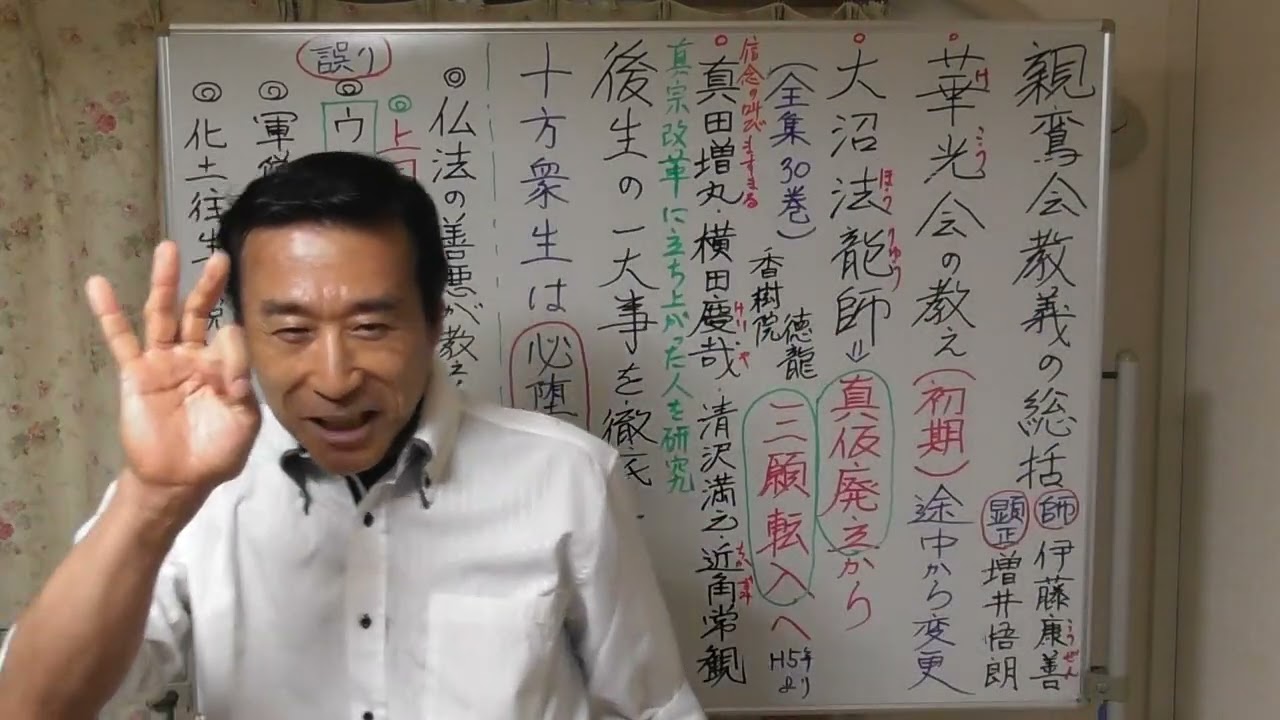 親鸞会教義の総括
師 伊藤康善
こうぜん
顕正 増井悟朗
華光会の教え(初期)途中から変更
け こう
大沼法龍師⇒真仮廃立から
ほう りゅう
(全集30巻)
香樹院
徳龍
三願転入へ
H5年より
信念の叫び ますまる
真田増丸・横田慶哉・清沢満之・近角常観
けい や
ちか ずみ
真宗改革に立ち上がった人を研究
後生の一大事を徹底
十方衆生は必堕
◎仏法の善悪が教え
◎上
誤り
◎ウ
◎軍
◎化土往生